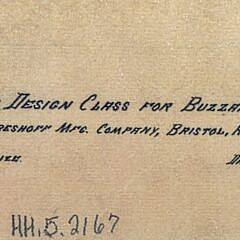 Design Class for Buzza
reshoff Mfg. Company, Bristol, R
HH.5.2167